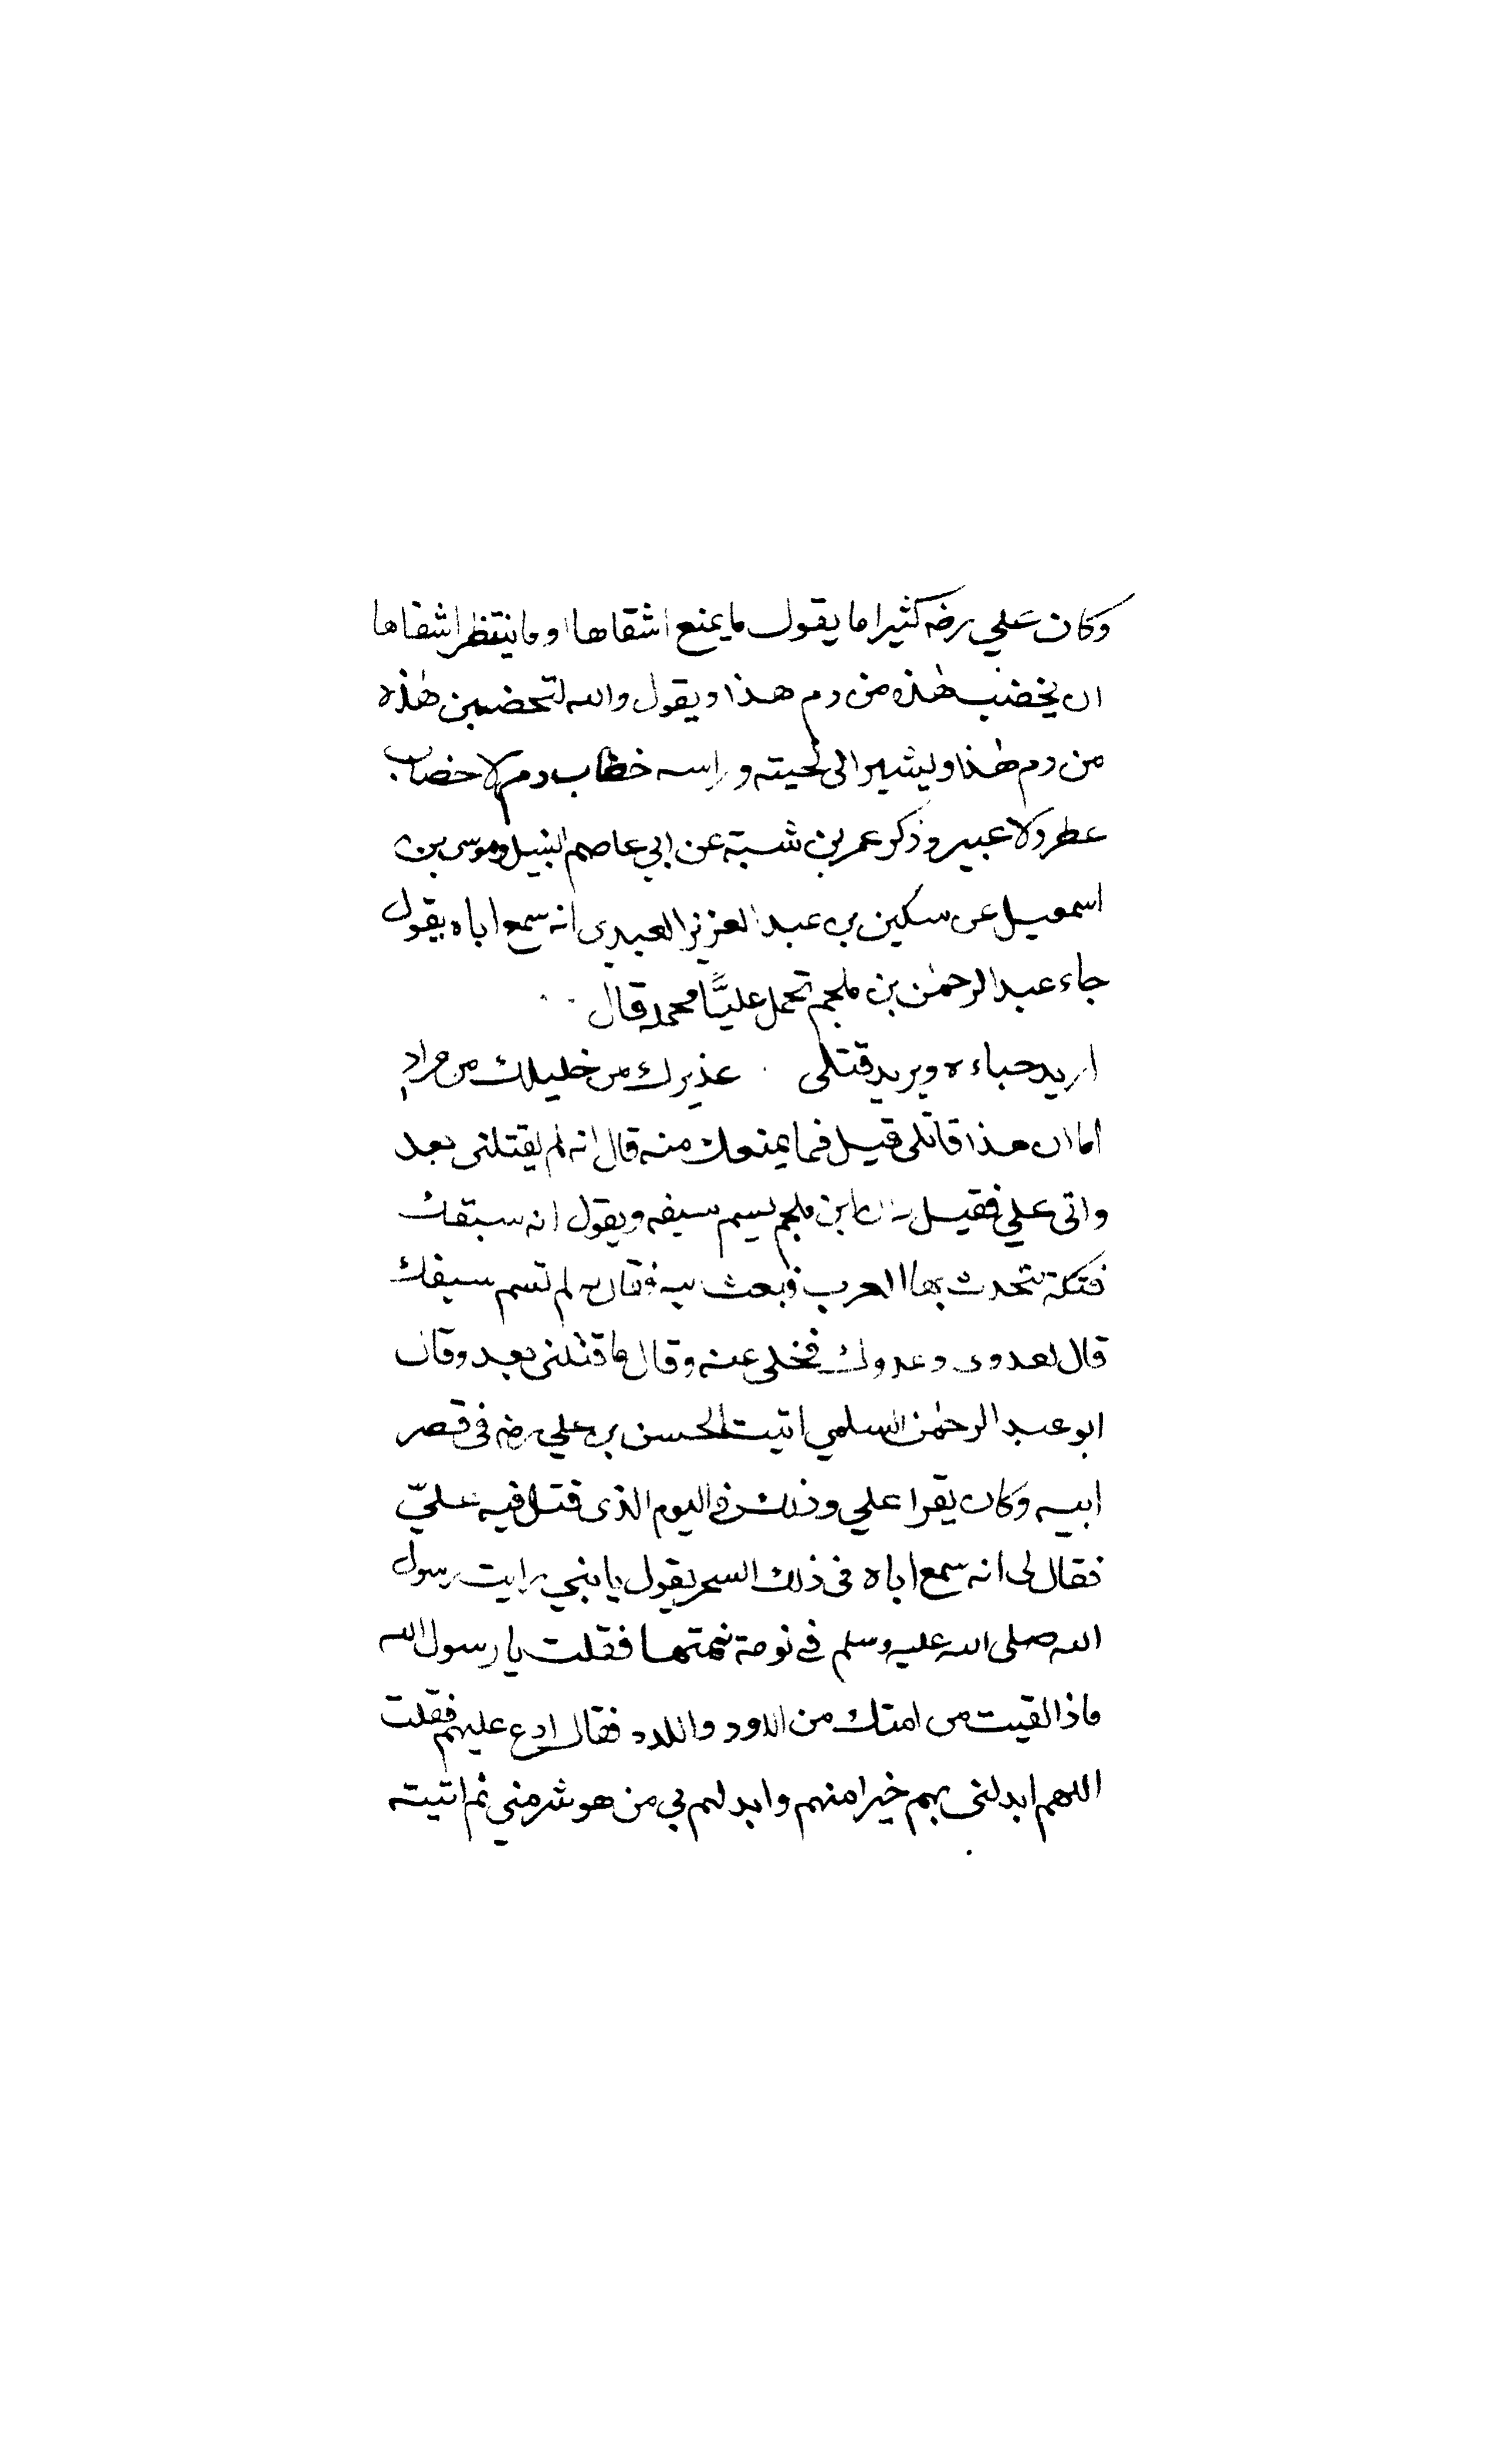 وكان علي رضه كثيرا ما يقول ما يمنع اشقاها او ما ينتظر اشقاها
ان يخضب هذه من دم هذا ويقول والله لتخضبن هذه
من دم هذا ويشير الى لحيته وراسه خضاب دم لا خضاب
عطر ولا عبير وذكر عمر بن شبة عن ابي عاصم النبيل وموسى بن
اسمعيل عن سكين بن عبد العزيز العبدى انه سمع اباه يقول
جاء عبد الرحمن بن ملجم تحمل عليًّا محمله قال
اريد حباءه ويريد قتلى عذيرك من خليلك من مراد
اما ان هذا قاتلى قيل فما يمنعك منه قال انه لم يقتلنى بعد
واتى علي فقيل ان ابن ملجم يسم سيفه ويقول انه سبقك
فتكة تتحدث بها العرب فبعث اليه فقال له لم تسم سيفك
قال لعدوى وعدوك فخلى عنه وقال ما قتلنى بعد وقال
ابو عبد الرحمن السلمي اتيت الحسن بن علي رضه فى قصر
ابيه وكان يقرا علي وذلك فى اليوم الذى قتل فيه عليّ
فقال لى انه سمع اباه فى ذلك السحر يقول يا بني رايت رسول
الله صلى الله عليه وسلم في نومة نمتها فقلت يا رسول الله
ماذا لقيت من امتك من الاود واللدد فقال ادع عليهم فقلت
اللهم ابدلنى بهم خيرا منهم وابدلهم بي من هو شر مني ثم اتيته